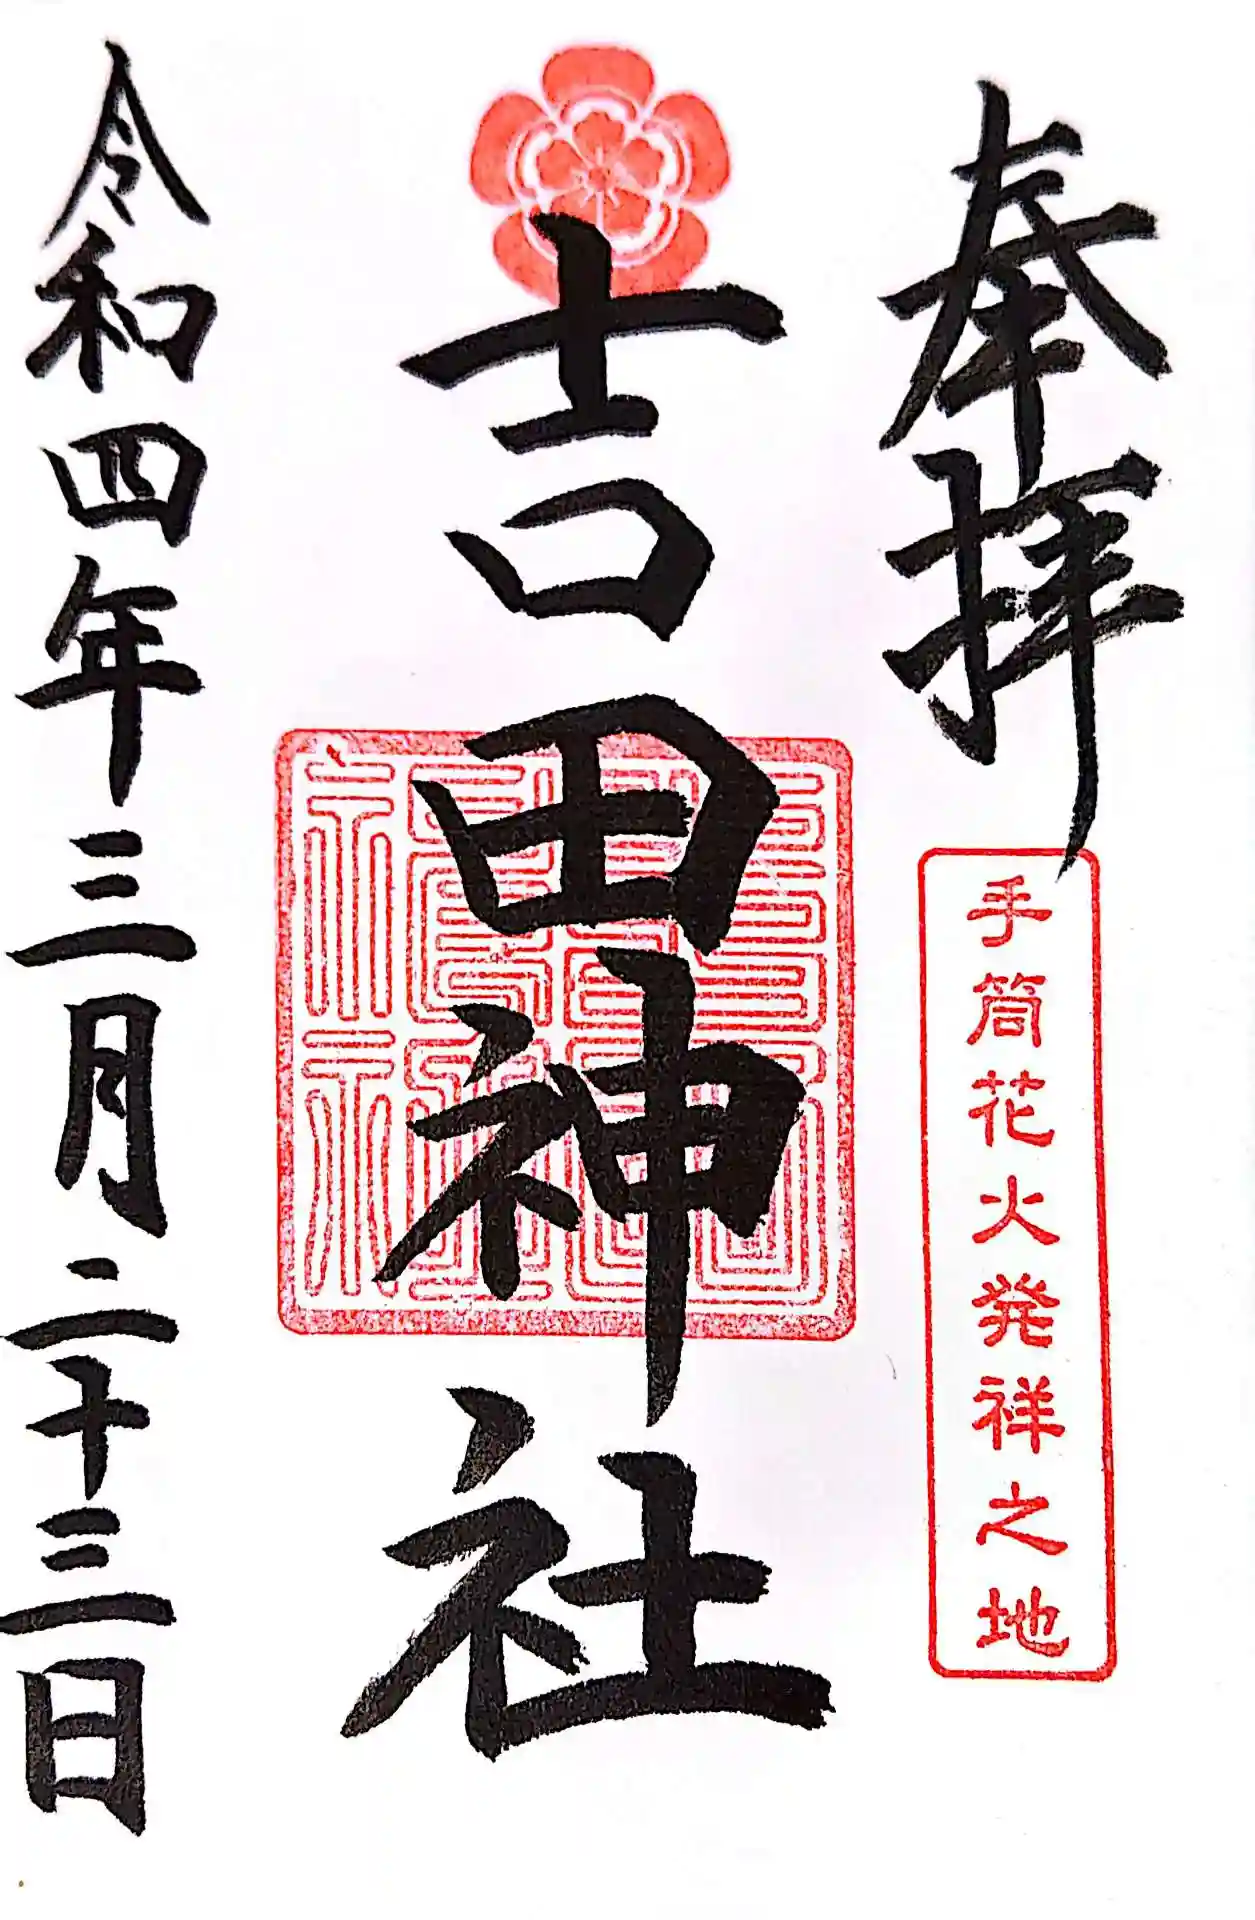 奉拝
手筒花火発祥之地
吉田神社
令和四年三月二十三日